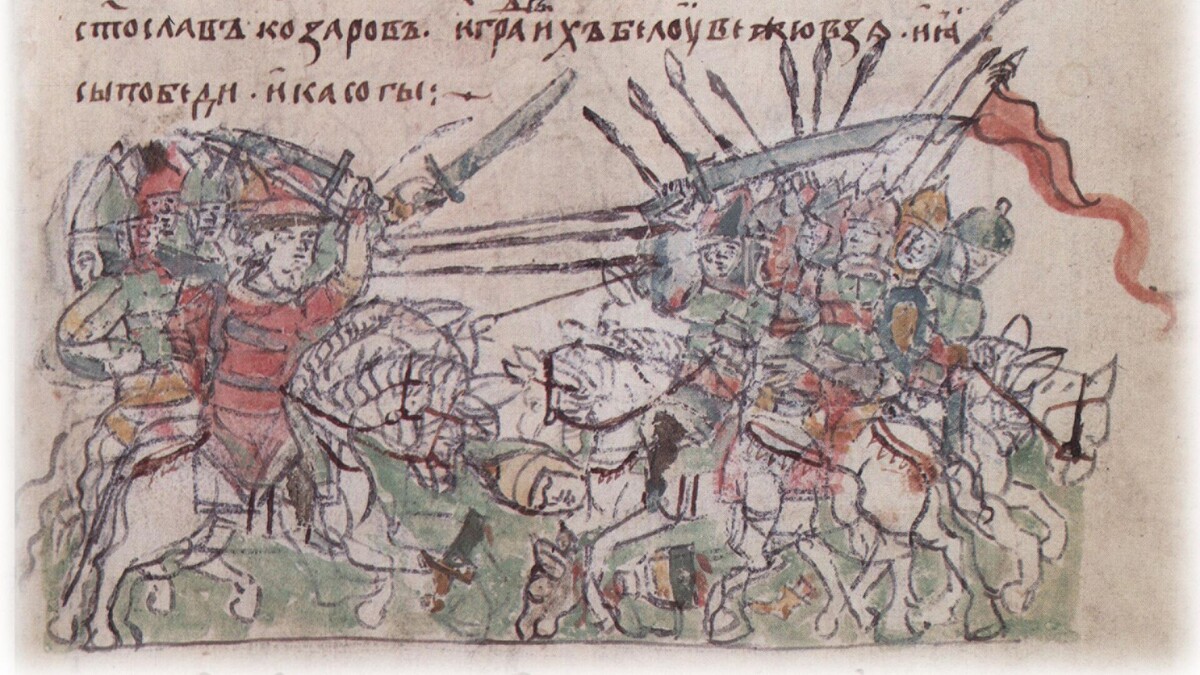 ст҃ославъ козаровъ · и҆ гра и҆хъ белоу вежю взѧ · и҆ ꙗ
сы победи · и҆ касогы :~